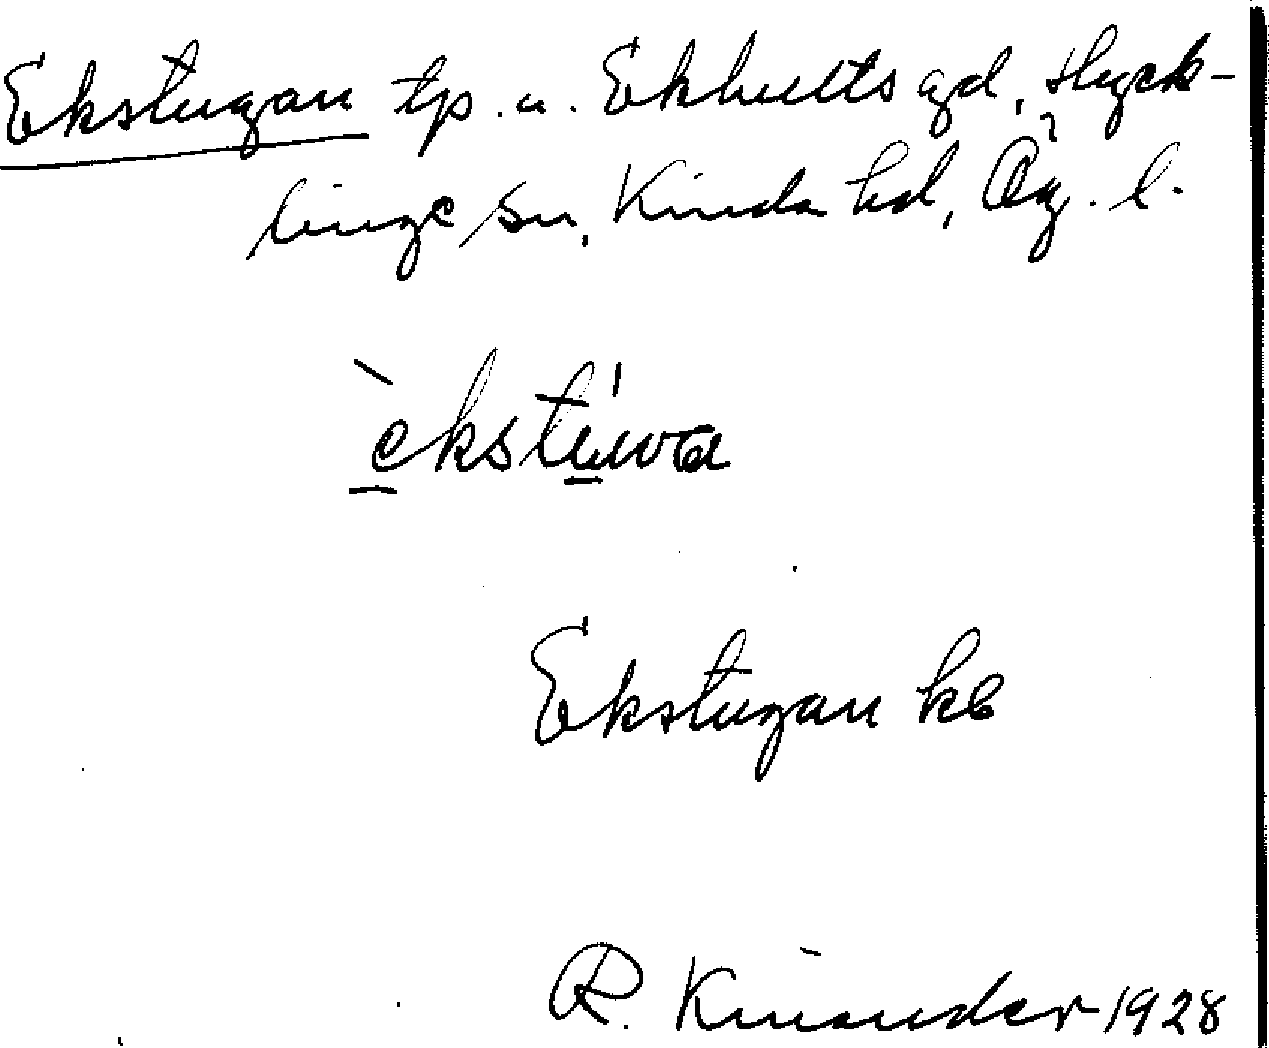 Ekstugan tp. u. Ekhults gd, Hyck-
linge sn, Kinda hd, Ög. l.
èkstúwa
Ekstugan kb
R. Kinander 1928